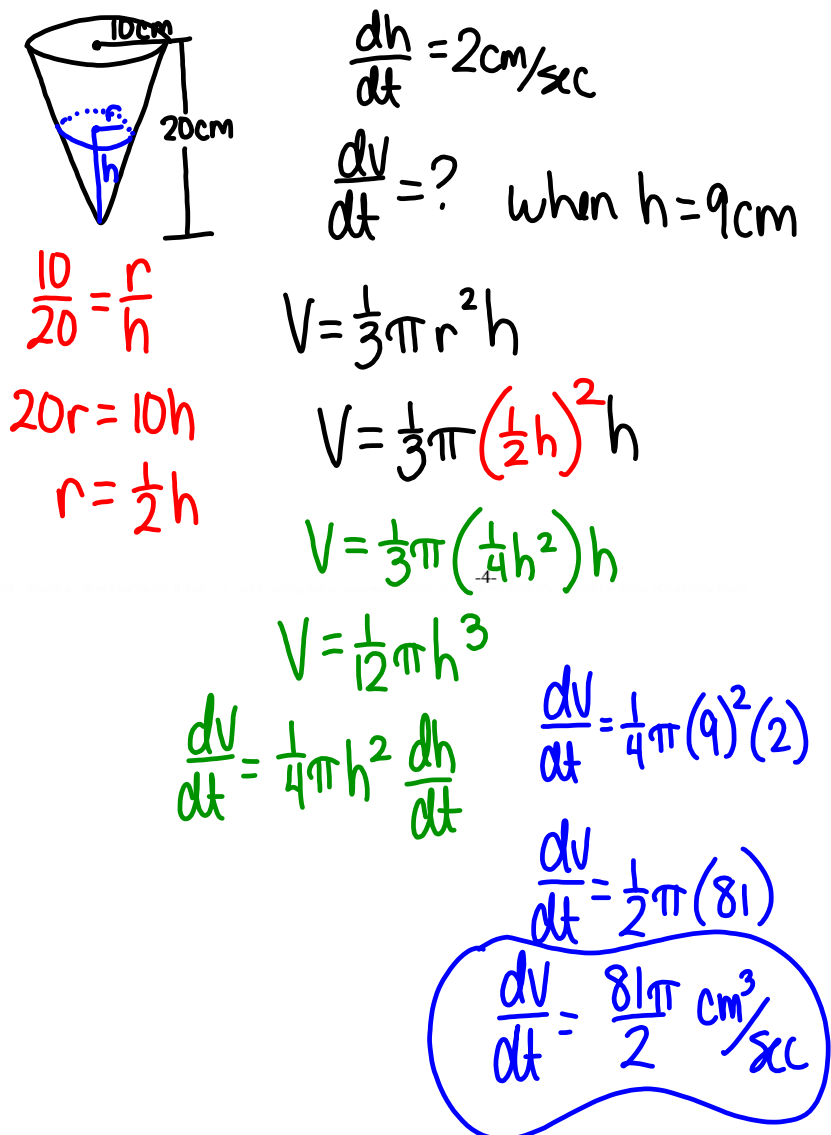 10cm
r
20cm
h
dh/dt = 2cm/sec
dV/dt = ? when h = 9cm
10/20 = r/h
20r = 10h
r = 1/2 h
V = 1/3 π r² h
V = 1/3 π (1/2 h)² h
V = 1/3 π (1/4 h²) h
-4-
V = 1/12 π h³
dV/dt = 1/4 π h² dh/dt
dV/dt = 1/4 π (9)² (2)
dV/dt = 1/2 π (81)
dV/dt = 81π/2 cm³/sec